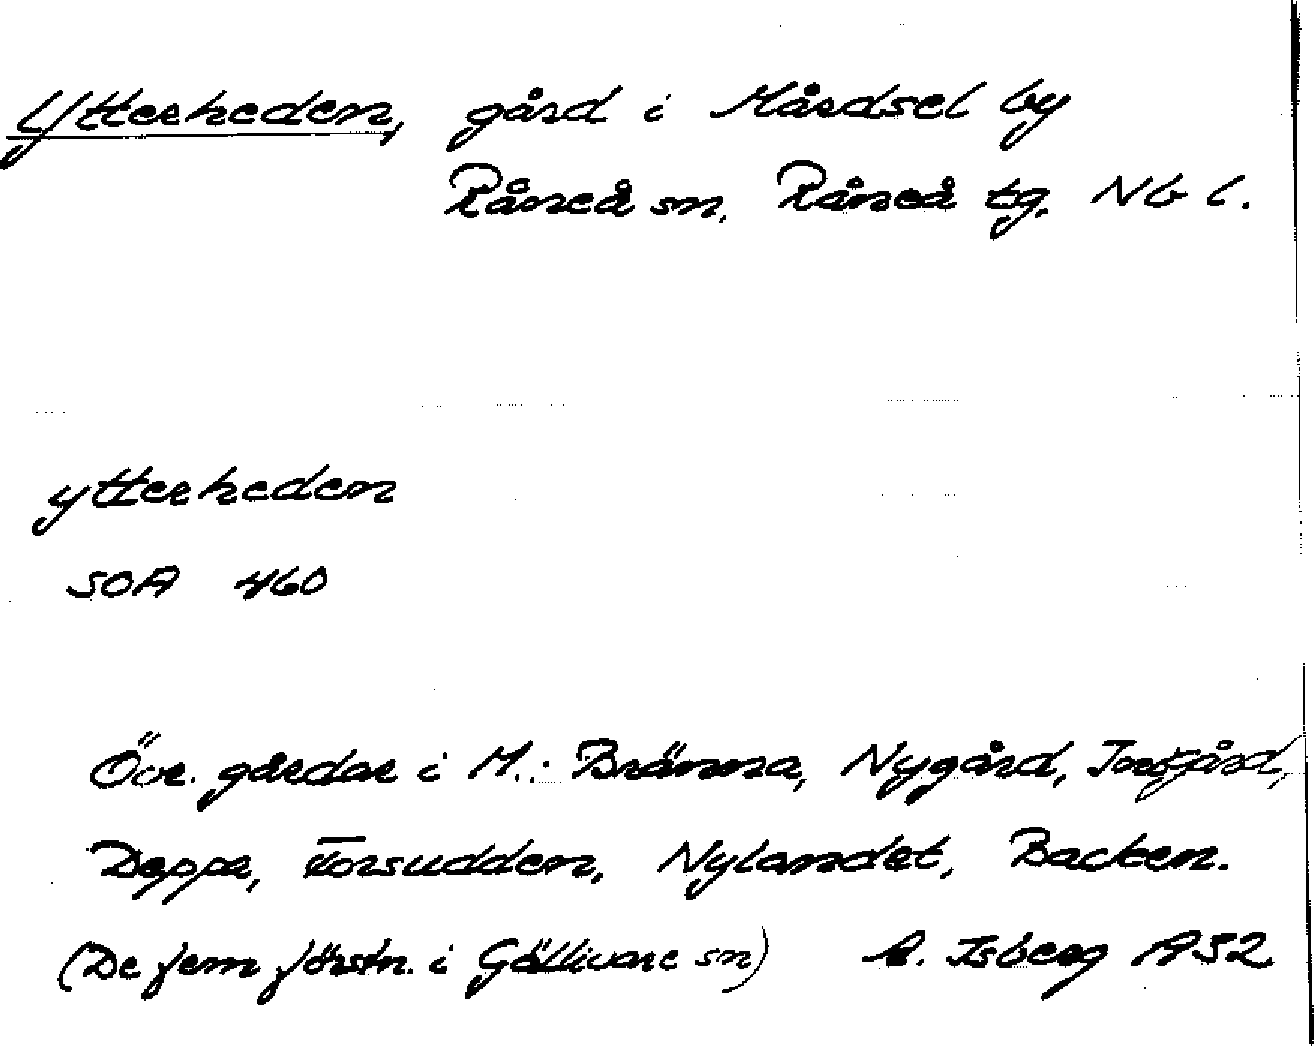 Ytterheden, gård i Mårdsel by
Råneå sn. Råneå tg. Nb l.
ytterheden
SOA 460
Övr. gårdar i M.: Bränna, Nygård,
Deppe, Forsudden, Nylandet, Backen.
(De fem förstn. i Gällivare sn) A. Isberg A52